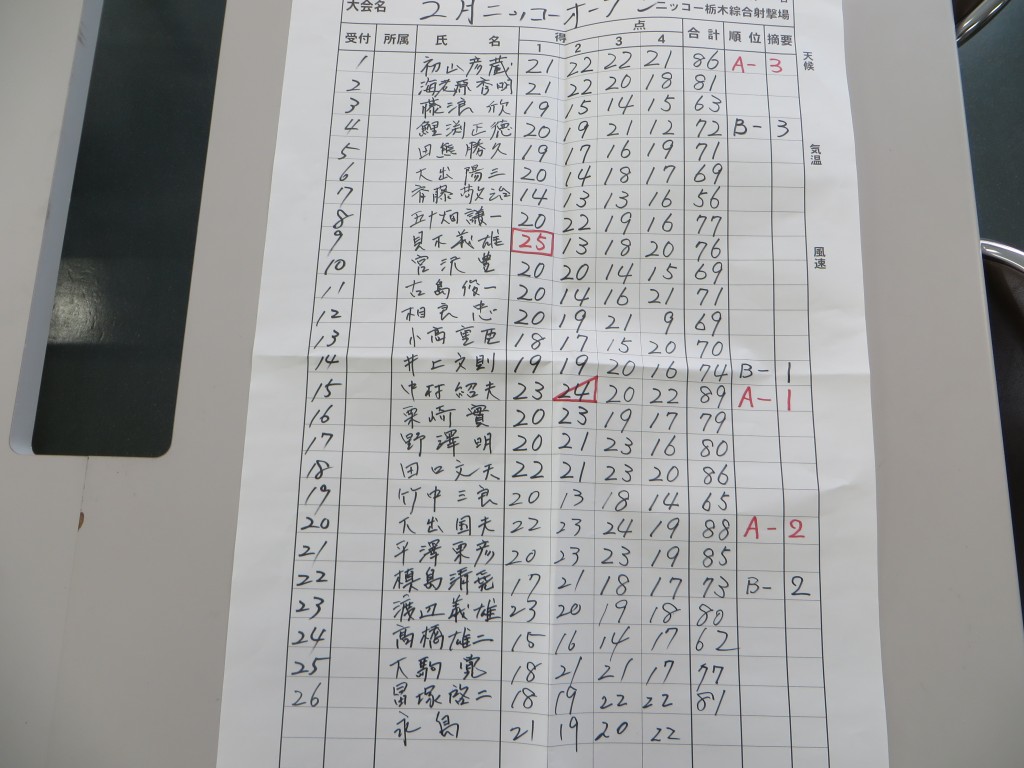 大会名 2月ニッコーオープン ニッコー栃木綜合射撃場
受付 所属 氏名 得点 1 2 3 4 合計 順位 摘要
天候
1 初山彦蔵 21 22 22 21 86 A-3
2 海老原秀明 21 22 20 18 81
3 藤浪欣 19 15 14 15 63
4 鯉渕正徳 20 19 21 12 72 B-3
気温
5 田熊勝久 19 17 16 19 71
6 大出陽三 20 14 18 17 69
7 斉藤敬治 14 13 13 16 56
8 五十畑譲一 20 22 19 16 77
9 貝木義雄 25 13 18 20 76
風速
10 宮沢豊 20 20 14 15 69
11 古島俊一 20 14 16 21 71
12 相良忠 20 19 21 9 69
13 小高重臣 18 17 15 20 70
14 井上文則 19 19 20 16 74 B-1
15 中村紹夫 23 24 20 22 89 A-1
16 栗崎實 20 23 19 17 79
17 野澤明 20 21 23 16 80
18 田口文夫 22 21 23 20 86
19 竹中三良 20 13 18 14 65
20 大出国夫 22 23 24 19 88 A-2
21 平澤東彦 20 23 23 19 85
22 槙島 17 21 18 17 73 B-2
23 渡辺義雄 23 20 19 18 80
24 高橋雄二 15 16 14 17 62
25 大駒寛 18 21 21 17 77
26 塚啓二 18 19 22 22 81
永島 21 19 20 22